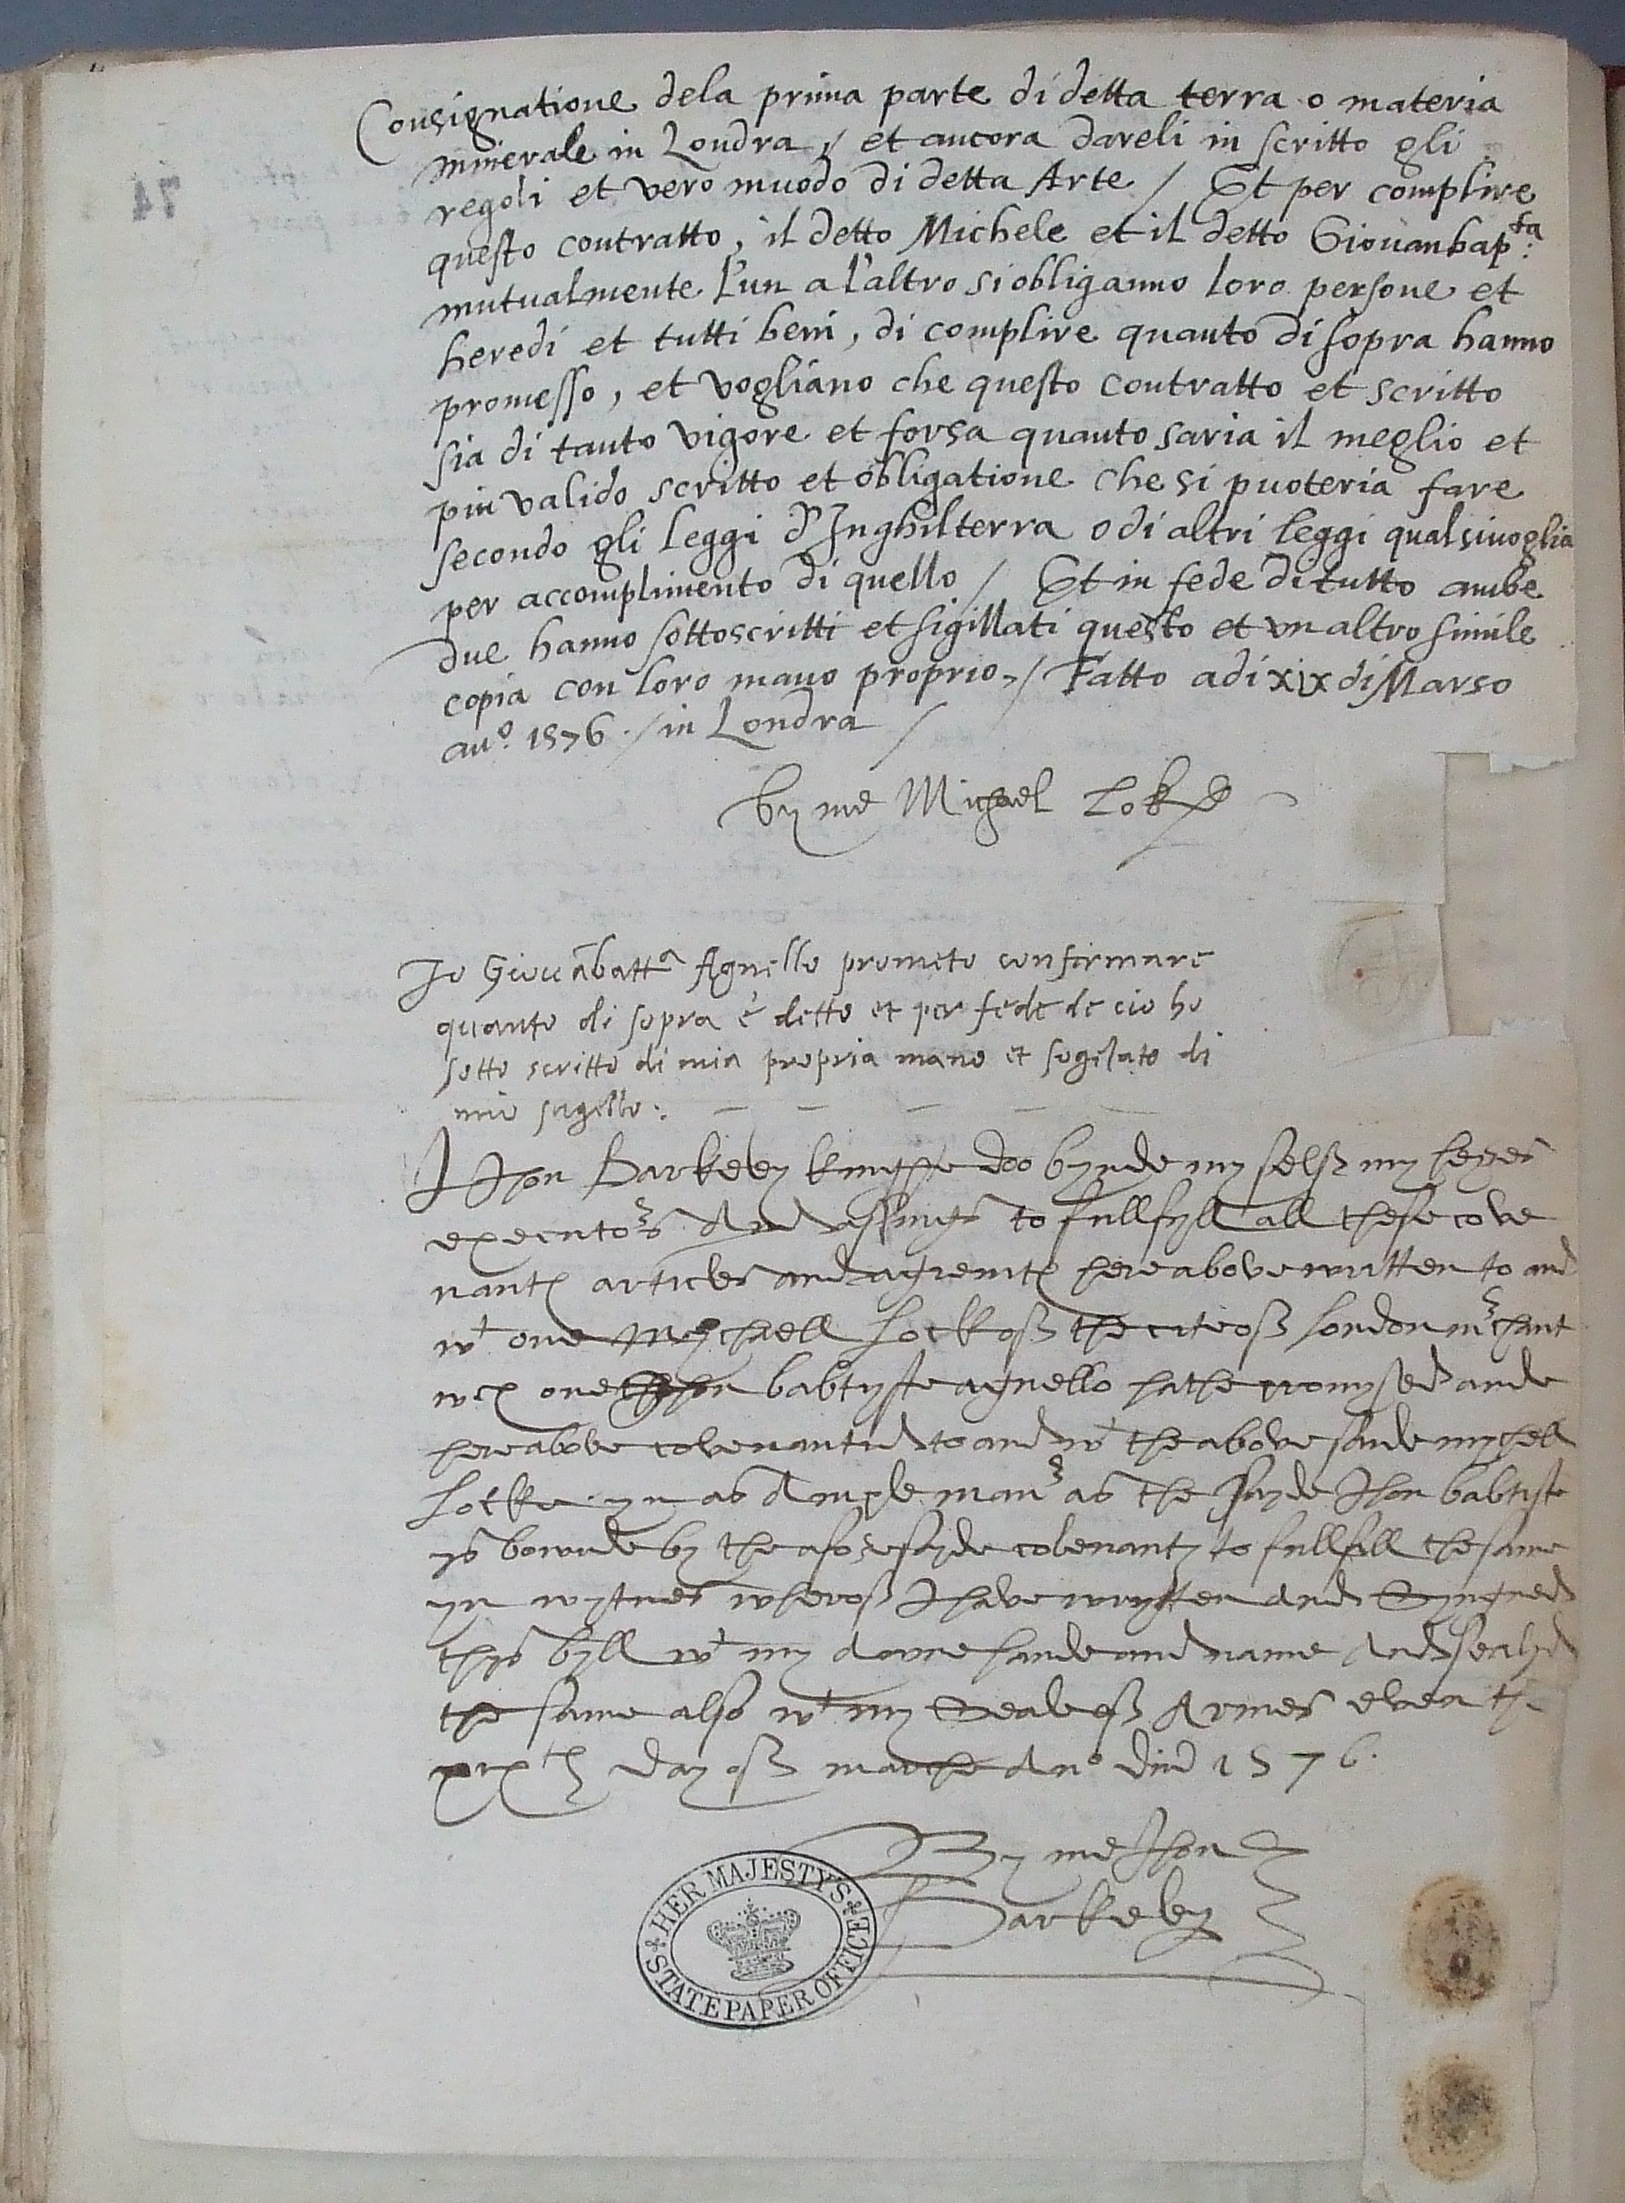 Consignatione dela prima parte di detta terra o materia
minerale in Londra / et ancora dareli in scritto gli
regoli et vero muodo di detta Arte / Et per complire
questo contratto, il detto Michele et il detto Giouanbapta:
mutualmente l'un a l'altro si obliganno loro persone et
heredi et tutti beni, di complire quanto di sopra hanno
promesso, et vogliano che questo contratto et scritto
sia di tanto vigore et forsa quanto saria il meglio et
piu valido scritto et obligatione che si puoteria fare
secondo gli leggi d'Inghilterra o di altri leggi qualsiuoglia
per accomplimento di quello / Et in fede di tutto ambe
due hanno sottoscritti et sigillati questo et vn altro simile
copia con loro mano proprio / Fatto a di xix di Marso
ano. 1576 / in Londra /
By me Michael Lok
Io Giouābatta Agnello prometo confirmare
quanto di sopra è detto et per fede de cio ho
sotto scritto di mia propria mano et sogelato di
mio sugello:
I Jhon Barkeley knight doo bynde my self my heyres
executors And assings to fullfyll all these cove
nants articles and agremts here above written to and
wt one Mychaell Lock off the cite off London mchant
wch one Jhon babtyste agnello hathe promysed ande
here above covenantid to and wt the above saide mychell
Locke yn as Ample maner as the sayde Jhon babtiste
ys bownde by the aforesayde covenants to fullfill the same
yn wytnes wheroff I have wrytten And Syngned
thys byll wt my Awne hande and name And sealyd
the same also wt my Seale off Armes even the
xixth day off marche Ano dnd 1576.
By me Jhon
Barkeley
HER MAJESTY'S
STATE PAPER OFFICE
74